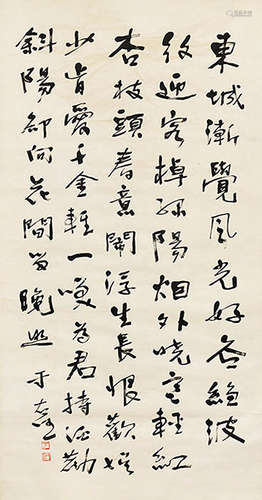 東城漸覺風光好波
紋迎客棹綠陽烟外曉寒輕紅
杏枝頭春意鬧浮生長恨歡娛
少肯愛千金輕一笑為君持酒勸
斜陽却向花間留晚照